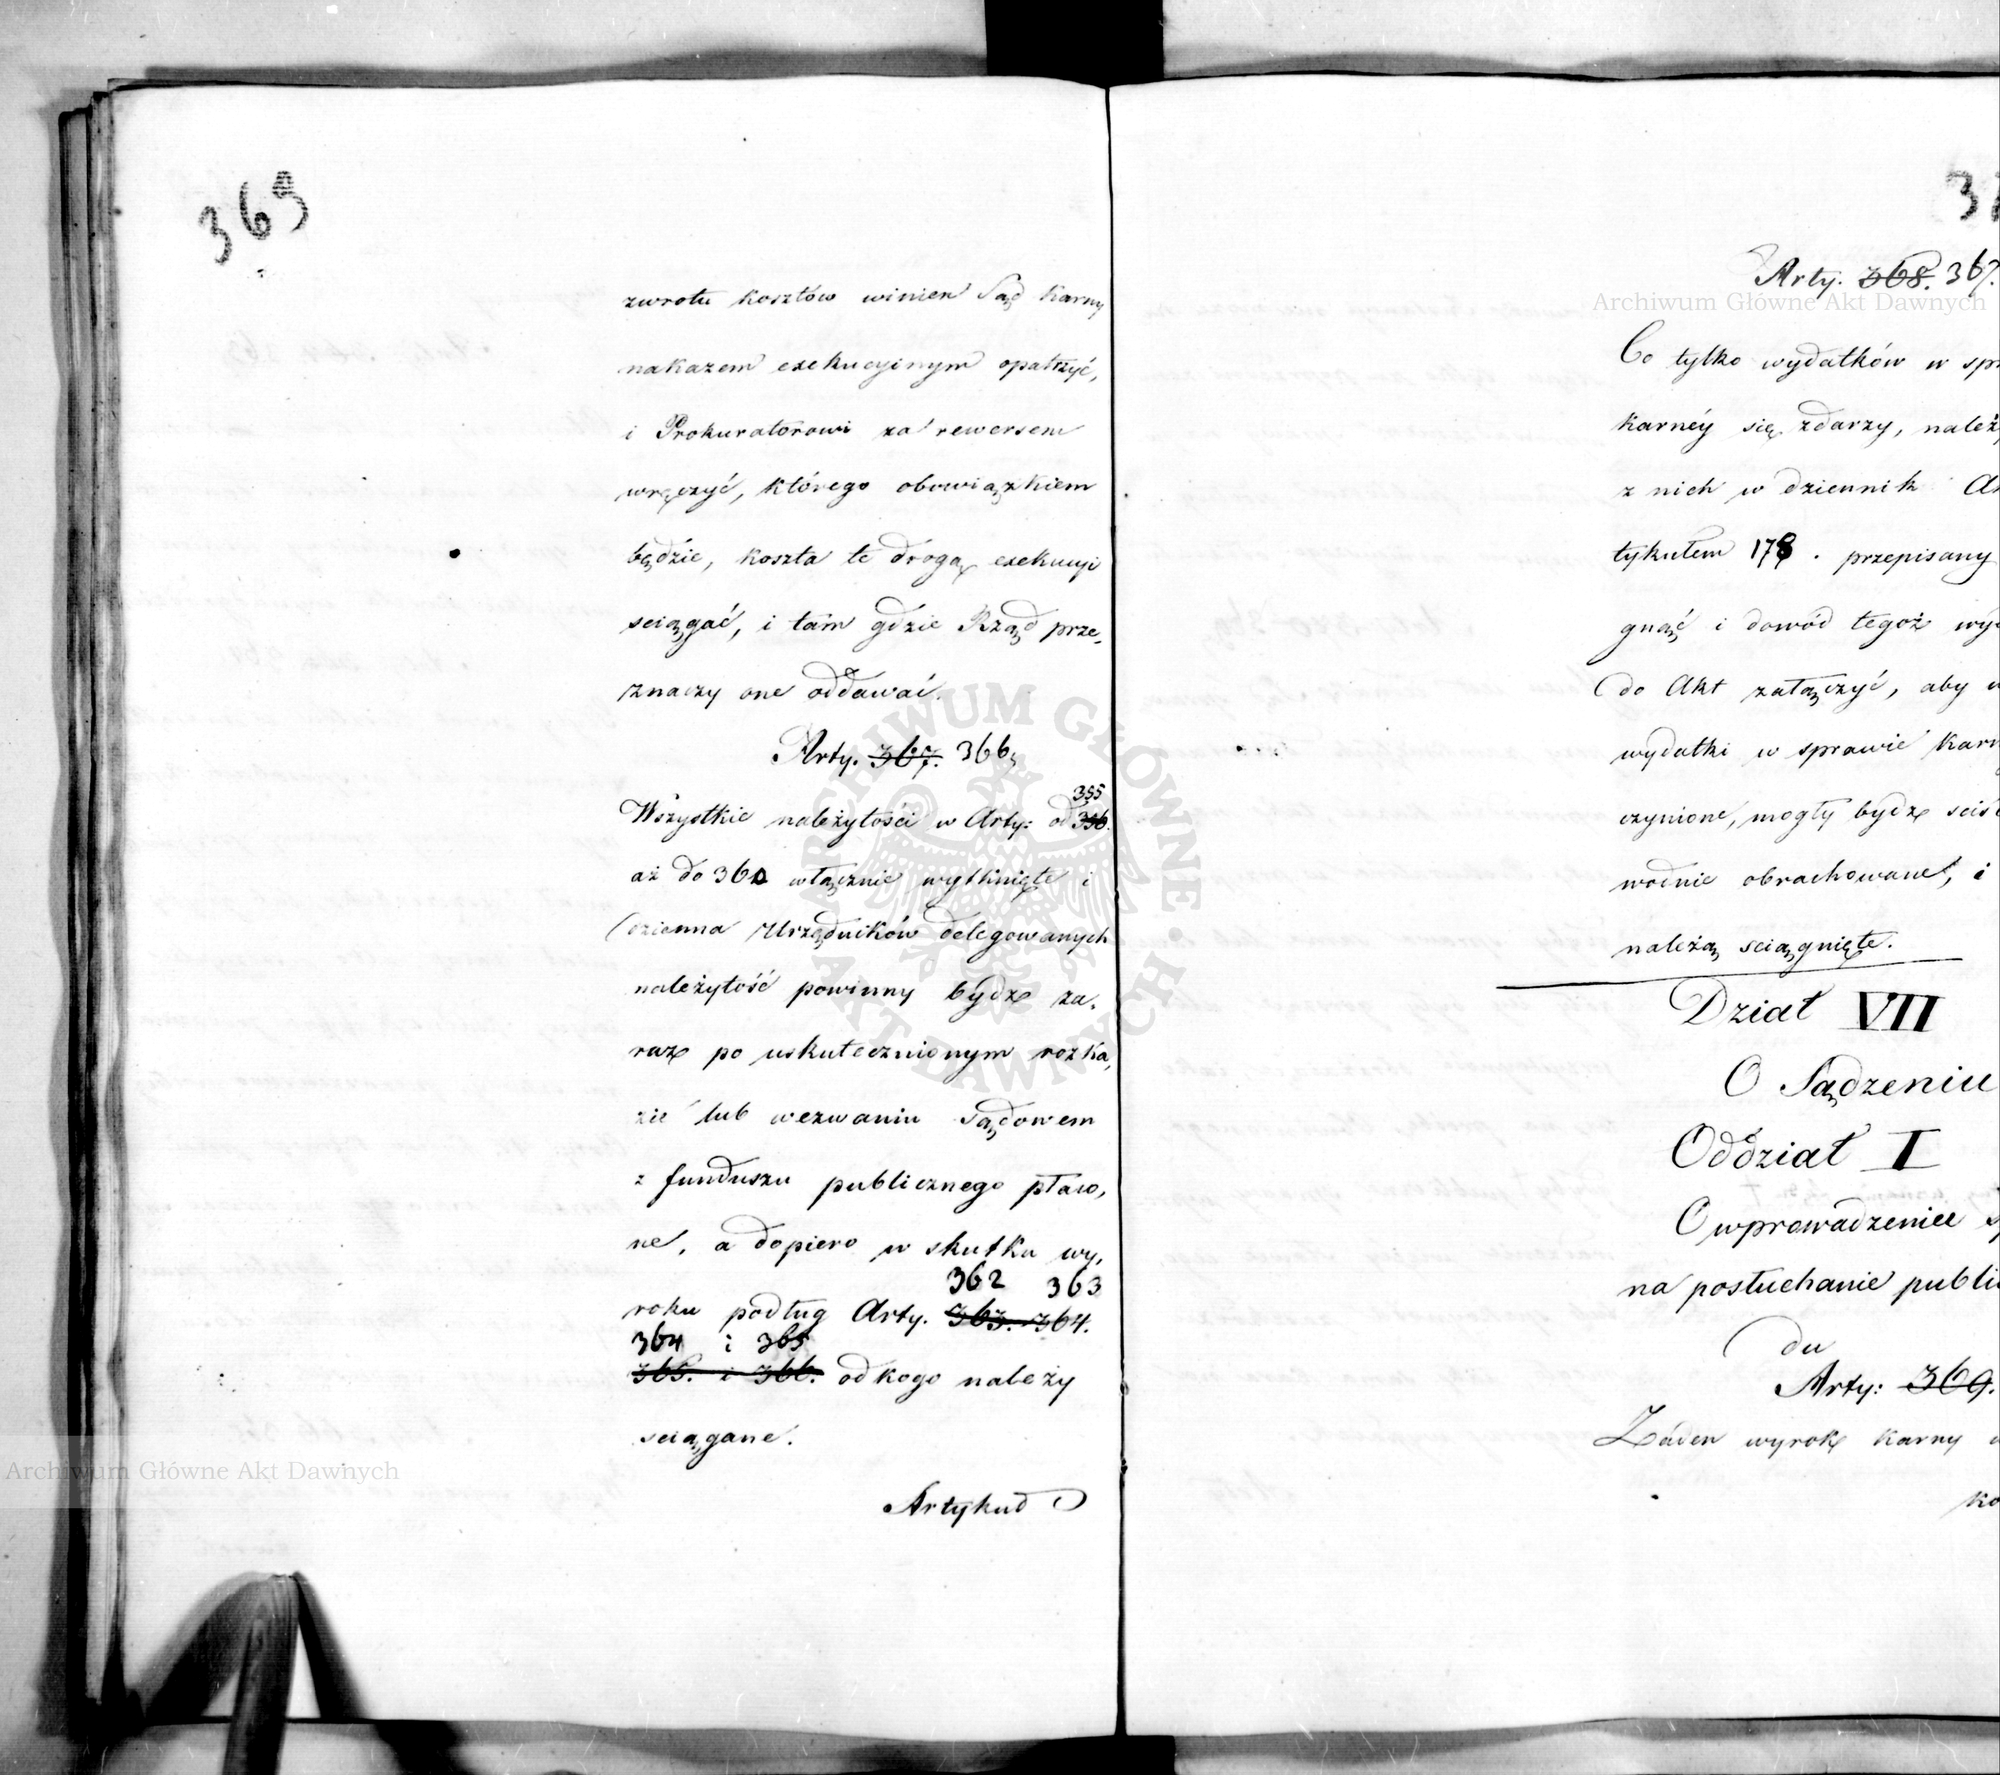 369
zwrotu kosztów winien Sąd Karny
nakazem exekucyinym opatrzyć,
i Prokuratorowi za rewersem
wręczyć, którego obowiązkiem
będzie, koszta te drogą exekucyi
sciągać, i tam gdzie Rząd prze-
znaczy one oddawać.
Arty. 367. 366
355
Wszystkie należytości w Arty: od 356.
aż do 360 włącznie wytknięte i
dzienna Urzędników delegowanych
należytość powinny bydź za-
raz po uskutecznionym rozka-
zie lub wezwaniu Sądowem
z funduszu publicznego płaco-
ne, a dopiero w skutku wy-
362 363
roku podług Arty. 363. 364.
364 i 365
365. i 366. od kogo należy
sciągane.
Artykuł
Arty. 368. 367.
Co tylko wydatków w spr
karnéy się zdarzy, należ
z nich w dziennik A
tykułem 178. przepisany
gnąć i dowód tegoż wy
do Akt załączyć, aby w
wydatki w sprawie Karn
czynione, mogły bydź sciś
wodnie obrachowane, i
należą sciągnięte.
Dział VII
O Sądzeniu
Oddział I
O wprowadzeniu s
na posłuchanie publi
du
Arty: 369.
Żaden wyrok karny
ko
Archiwum Główne Akt Dawnych
Archiwum Główne Akt Dawnych
ARCHIWUM GŁÓWNE AKT DAWNYCH